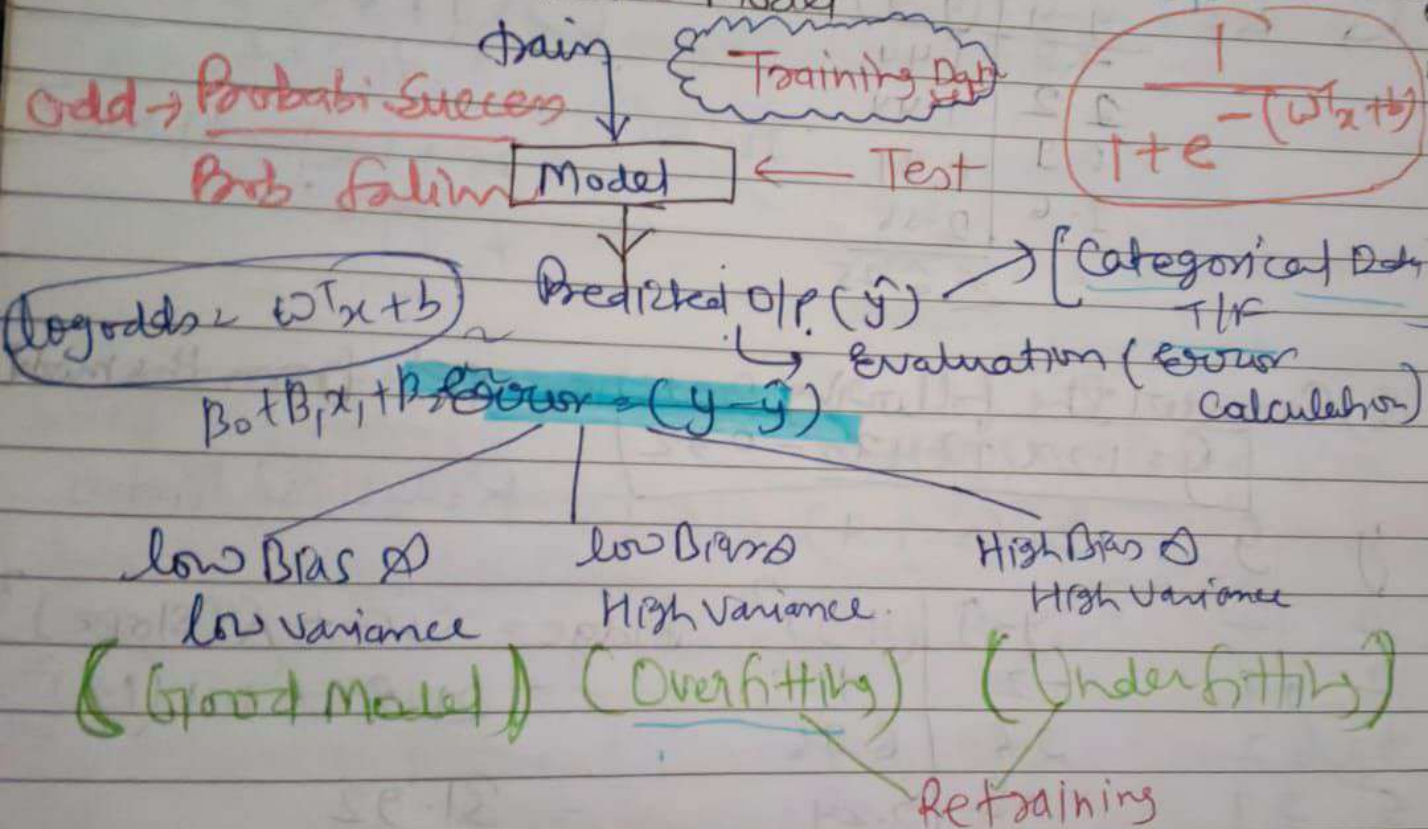 Model
train
Training Data
Odd → Probabi. Success
Prob. failure
Model
← Test
1
1 + e^-(wᵀx + b)
Predicted O/P. (ŷ)
[Categorical Data
T/F
Evaluation (Error
Calculation)
logodds = wᵀx + b
β₀ + β₁x₁ + β₂
Error = (y - ŷ)
low Bias &
low variance
low Bias &
High Variance.
High Bias &
High Variance
(Good Model)
(Overfitting)
(Underfitting)
Retraining